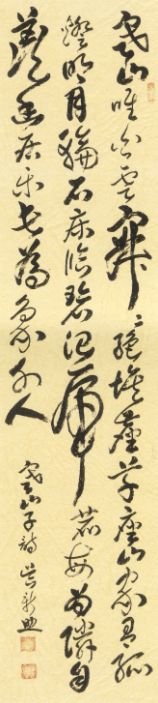 寒山唯白雲寂〻絕埃塵草座山家有孤
燈明月輪石床臨碧沼虎鹿每為鄰自
羨幽居樂長為象外人
寒山子詩